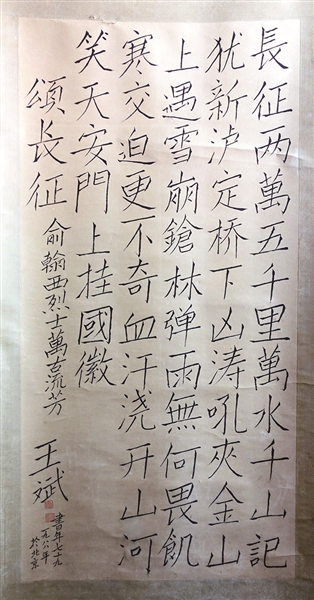 長征两萬五千里萬水千山記
犹新泸定桥下凶涛吼夾金山
上遇雪崩鎗林彈雨無何畏飢
寒交迫更不奇血汗浇开山河
笑天安門上挂國徽
頌長征
俞翰西烈士萬古流芳
王斌
書年七十九
一九八八年
於北京